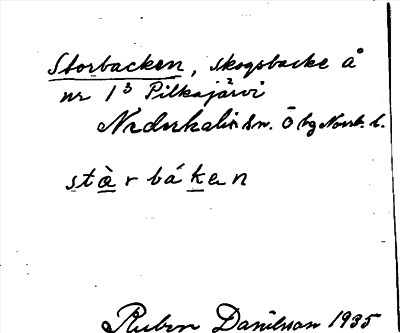 Storbacken, skogsbacke å
nr 1³ Pilkajärvi
Nederkalix sn. Ö bg Norrb. l.
stà̱r báḵen
Ruben Danilsson 1935